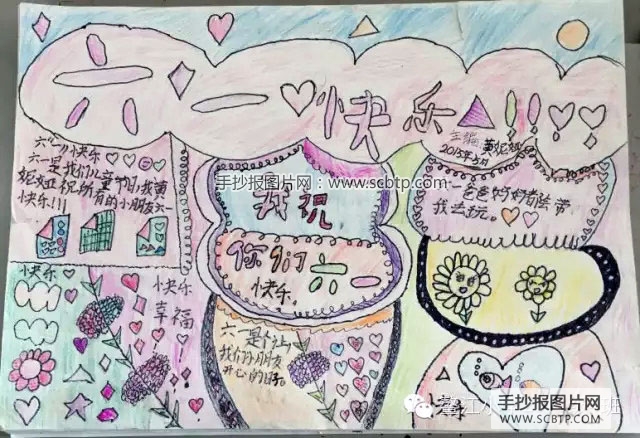 六一快乐!!
主编
2015年5月
六一快乐
六一是我们儿童节日,我黄
姬娅祝所有的小朋友六一
快乐!!!
手抄报图片网:www.scbtp.com
我祝
你们六一
快乐.
一爸妈妈都会带
我去玩。
快乐
快乐
幸福!
六一是个让
我们小朋友
开心的日子。
手抄报图片网
WWW.SCBTP.COM